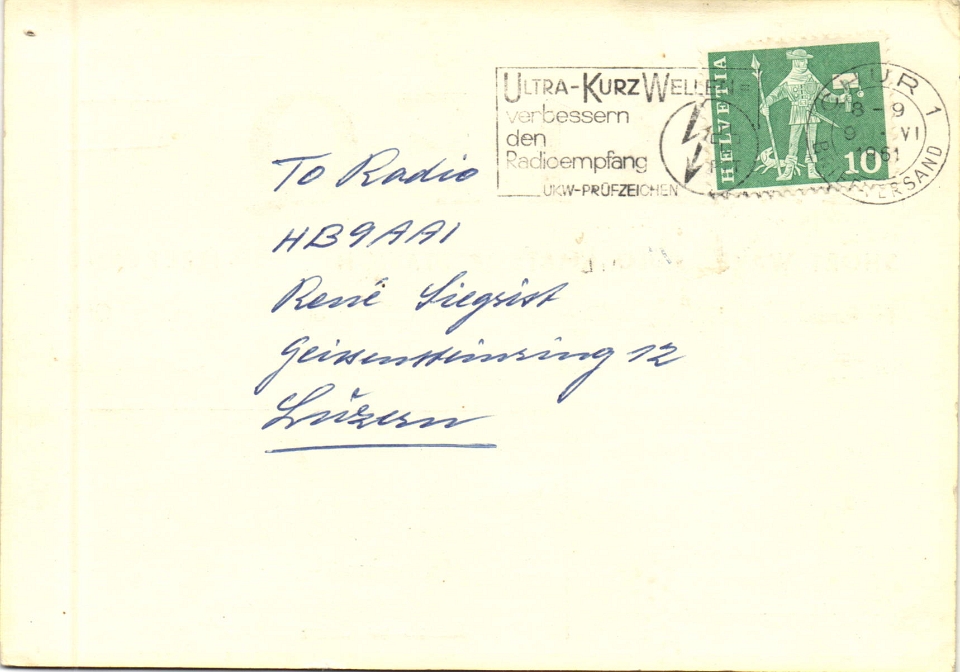 ULTRA-KURZWELLEN
verbessern
den
Radioempfang
UKW-PRÜFZEICHEN
HELVETIA
10
CHUR 1
8-9
1961
BRIEFVERSAND
To Radio
HB9AAI
René Siegrist
Geissensteinring 12
Luzern